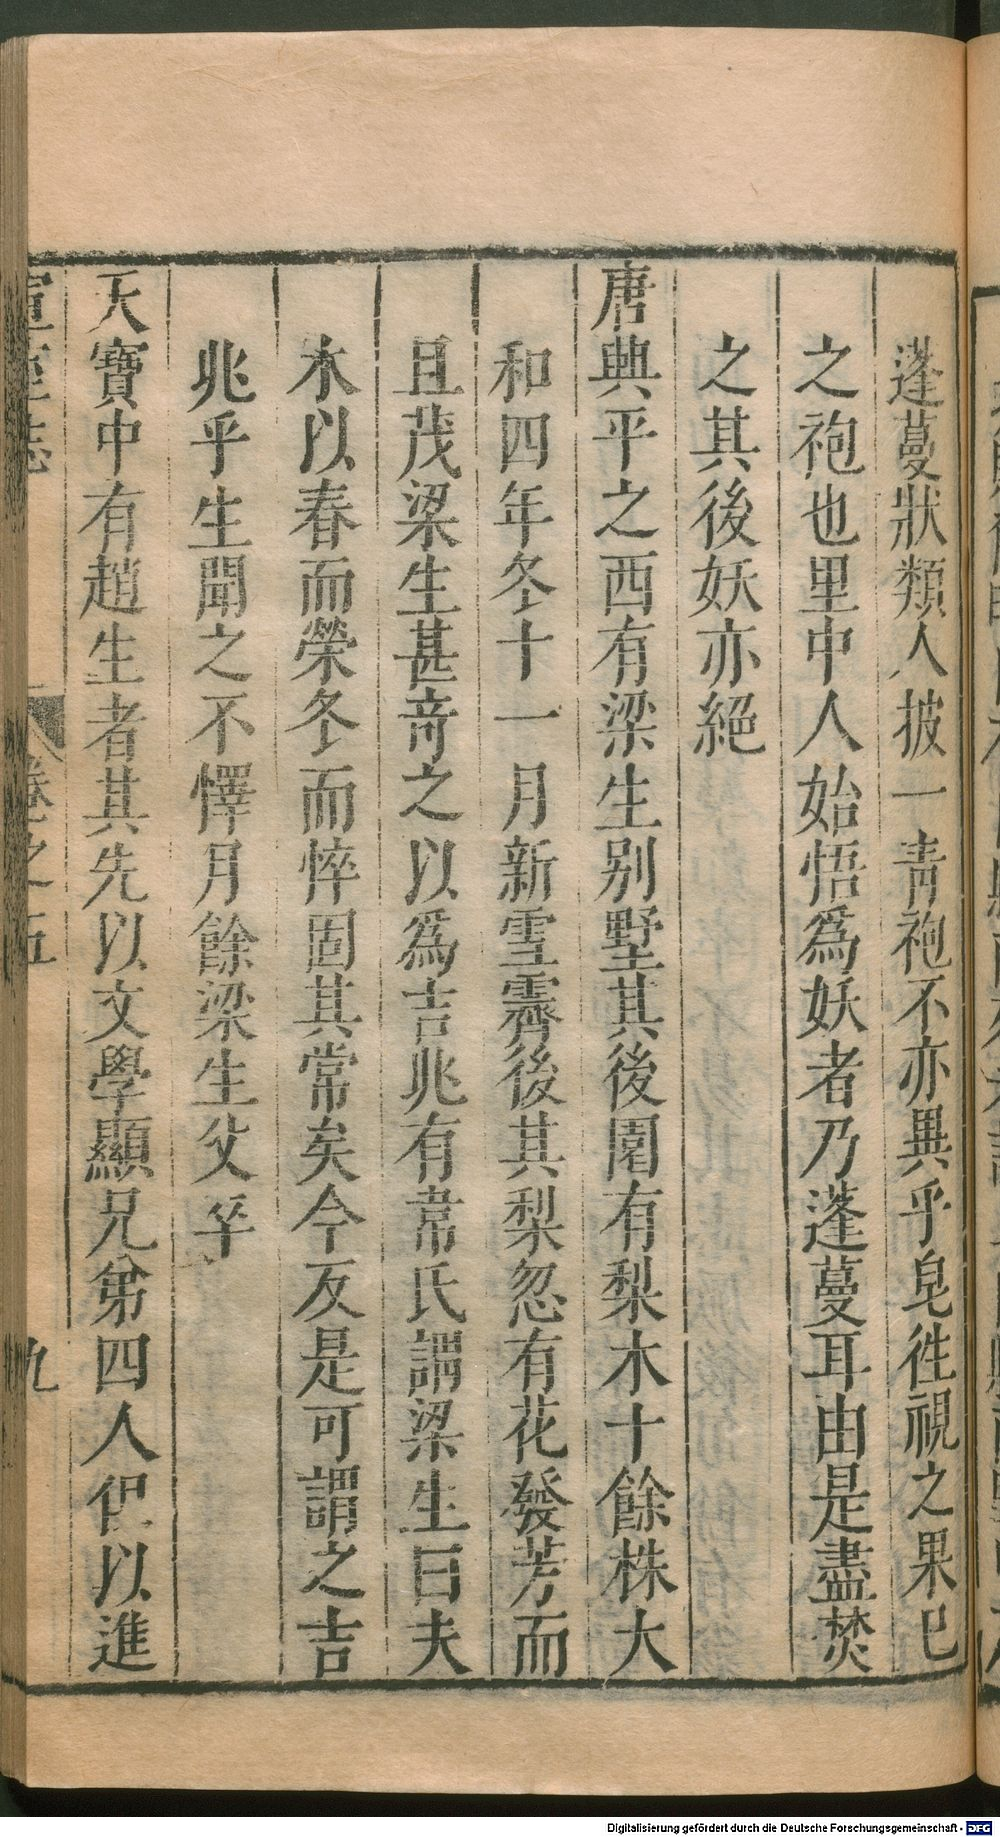 蓬蔓狀類人披一青袍不亦異乎皂徃視之果巳
之袍也里中人始悟爲妖者乃蓬蔓耳由是盡焚
之其後妖亦絕
唐興平之西有梁生别墅其後園有梨木十餘株大
和四年冬十一月新雪霽後其梨忽有花發芳而
且茂梁生甚竒之以爲吉兆有韋氏謂梁生曰夫
木以春而榮冬而悴固其常矣今反是可謂之吉
兆乎生聞之不懌月餘梁生父卒
天寶中有趙生者其先以文學顯兄弟四人俱以進
宣室志 卷之五 九
Digitalisierung gefördert durch die Deutsche Forschungsgemeinschaft - DFG